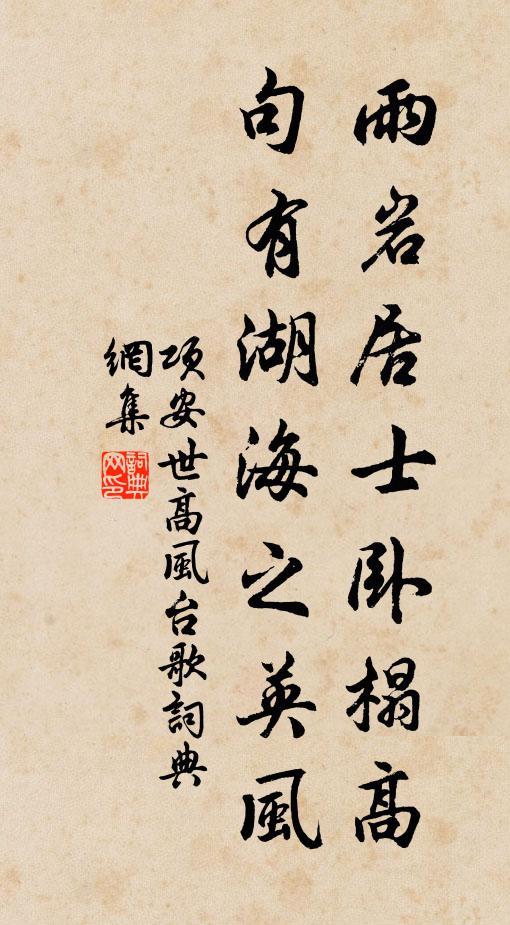 雨岩居士卧榻高
句有湖海之英風
項安世高風台歌詞典
網集
詞典网印